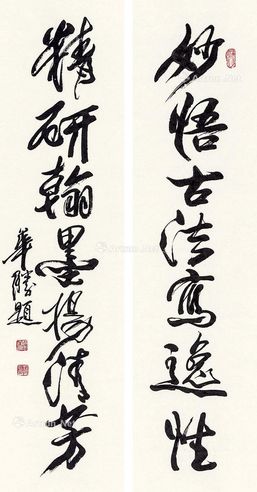 妙悟古法寫逸性
精研翰墨揚清芳
華勝題